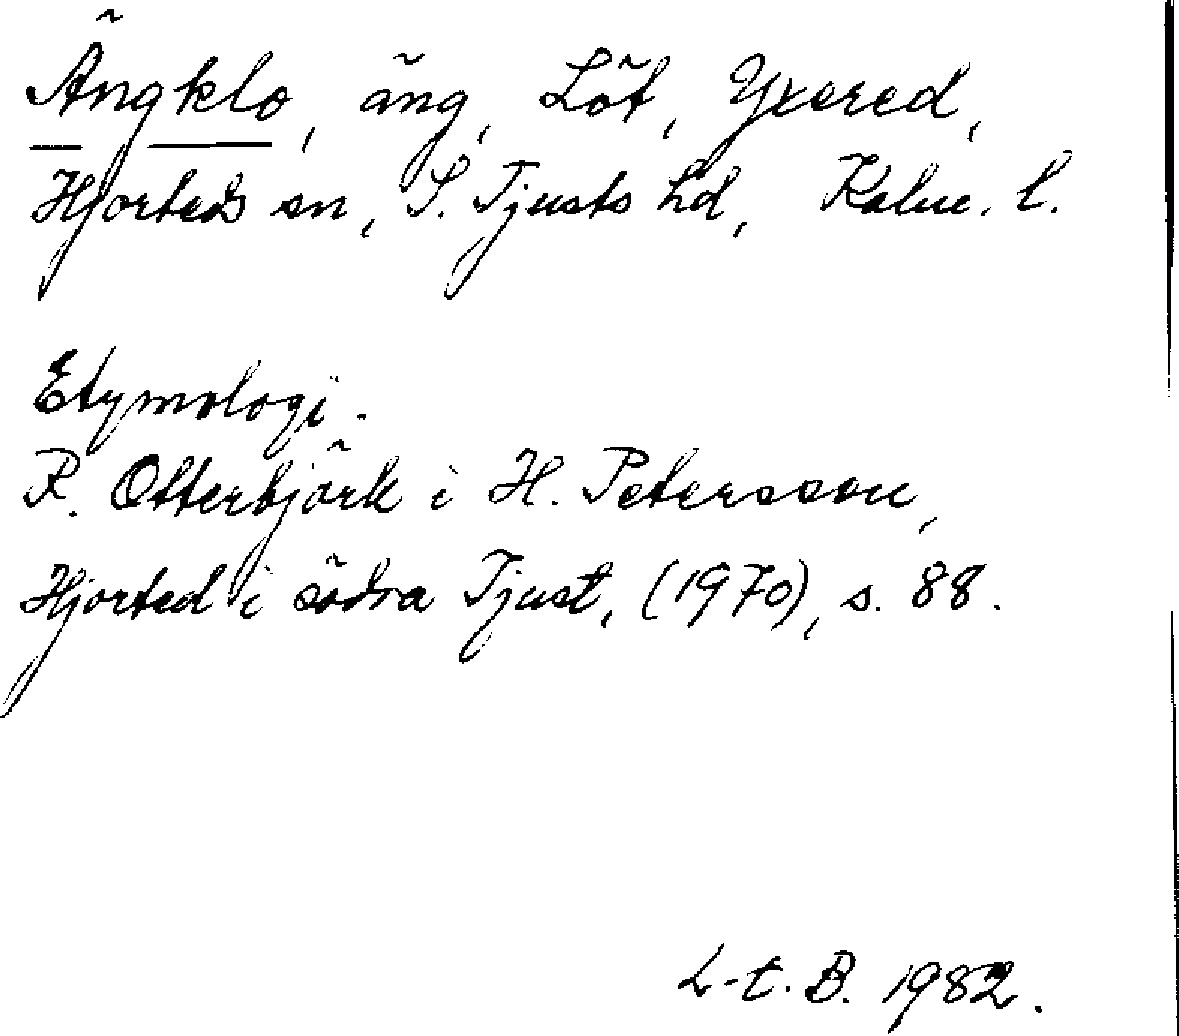 Ängklo, äng, Löt, Yxered,
Hjorteds sn, S. Tjusts hd, Kalm. l.
Etymologi.
R. Otterbjörk i H. Petersson,
Hjorted i södra Tjust, (1970), s. 88.
L-t. B. 1982.